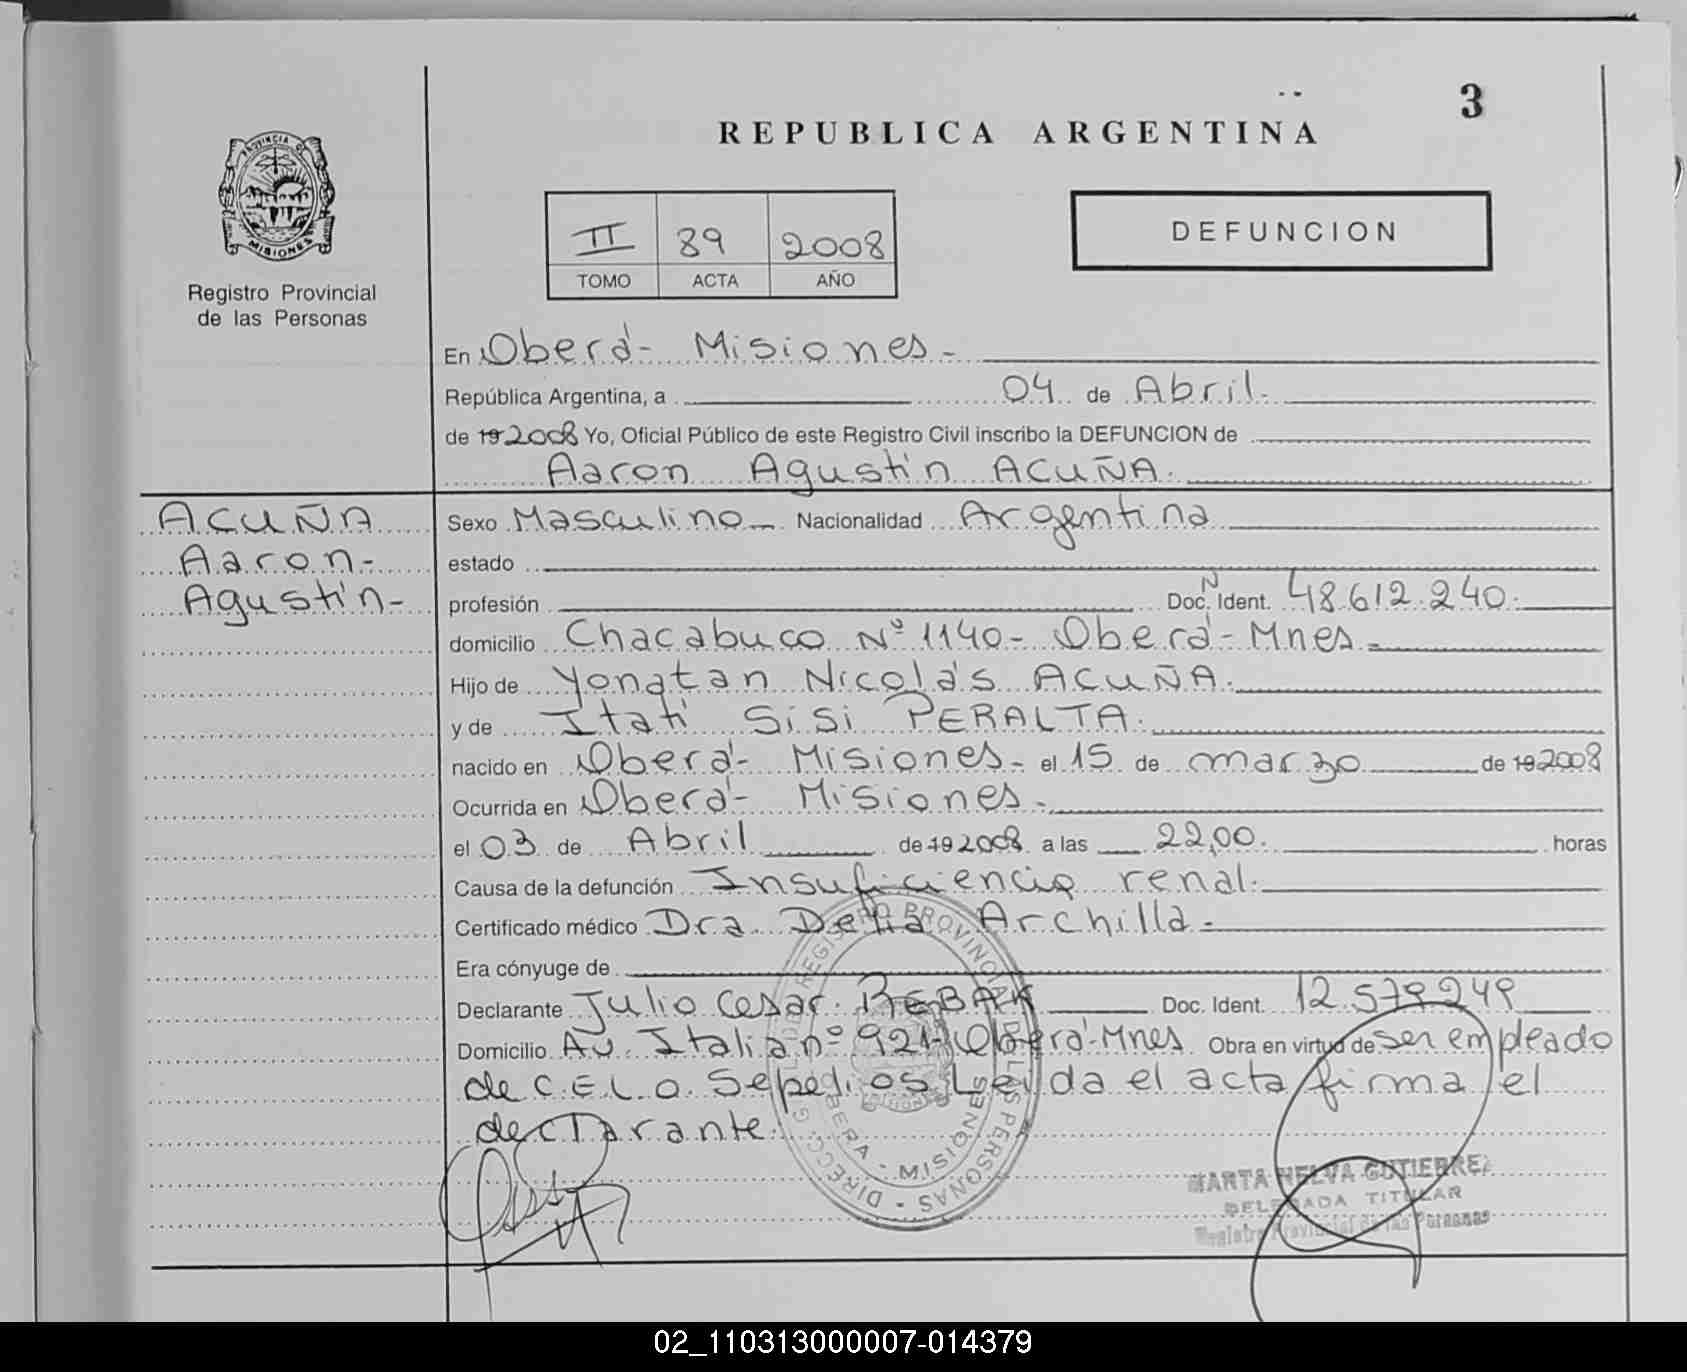 3
REPUBLICA ARGENTINA
PROVINCIA DE
MISIONES
Registro Provincial
de las Personas
II 89 2008
TOMO ACTA AÑO
DEFUNCION
En Oberá- Misiones-
República Argentina, a 04 de Abril-
de 19 2008 Yo, Oficial Público de este Registro Civil inscribo la DEFUNCION de
Aaron Agustín ACUÑA.
ACUÑA
Aaron-
Agustín-
Sexo Masculino Nacionalidad Argentina
estado
profesión Doc. N Ident. 48.612.240.
domicilio Chacabuco Nº 1140- Oberá- Mnes-
Hijo de Yonatan Nicolás ACUÑA.
y de Itatí Sisi PERALTA.
nacido en Oberá- Misiones- el 15 de marzo de 19 2008
Ocurrida en Oberá- Misiones-
el 03 de Abril de 19 2008 a las 22,00. horas
Causa de la defunción Insuficiencia renal.
Certificado médico Dra Delia Archilla-
Era cónyuge de
Declarante Julio Cesar REBAK Doc. Ident. 12.579.249
Domicilio Av. Italia nº 921- Oberá-Mnes. Obra en virtud de ser empleado
de C.E.L.O. Sepelios Leida el acta firma el
declarante.
DIRECC. G. DEL REGISTRO PROVINCIAL DE LAS PERSONAS
OBERA - MISIONES
MARTA NELVA GUTIERREZ
DELEGADA TITULAR
Registro Provincial de las Personas
02_110313000007-014379